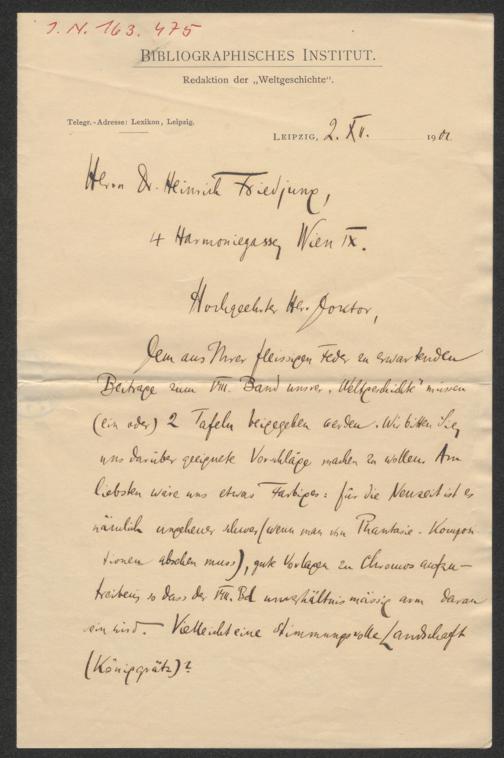 J. N. 163.475
BIBLIOGRAPHISCHES INSTITUT.
Redaktion der „Weltgeschichte“.
Telegr.-Adresse: Lexikon, Leipzig.
LEIPZIG, 2. XII. 1901
Herrn Dr. Heinrich Friedjung,
4 Harmoniegasse, Wien IX.
Hochgeehrter Herr Doktor,
Dem aus Ihrer fleissigen Feder zu erwartenden
Beitrage zum VIII. Band unsrer „Weltgeschichte“ müssen
(ein oder) 2 Tafeln beigegeben werden. Wir bitten Sie,
uns darüber geeignete Vorschläge machen zu wollen. Am
liebsten wäre uns etwas Farbiges: für die Neuzeit ist es
nämlich ungeheuer schwer (wenn man von Phantasie-Komposi-
tionen absehen muss), gute Vorlagen zu Chromos aufzu-
treiben, so dass der VIII. Bd unverhältnismässig arm daran
sein wird. Vielleicht eine stimmungsvolle Landschaft
(Königgrätz)?